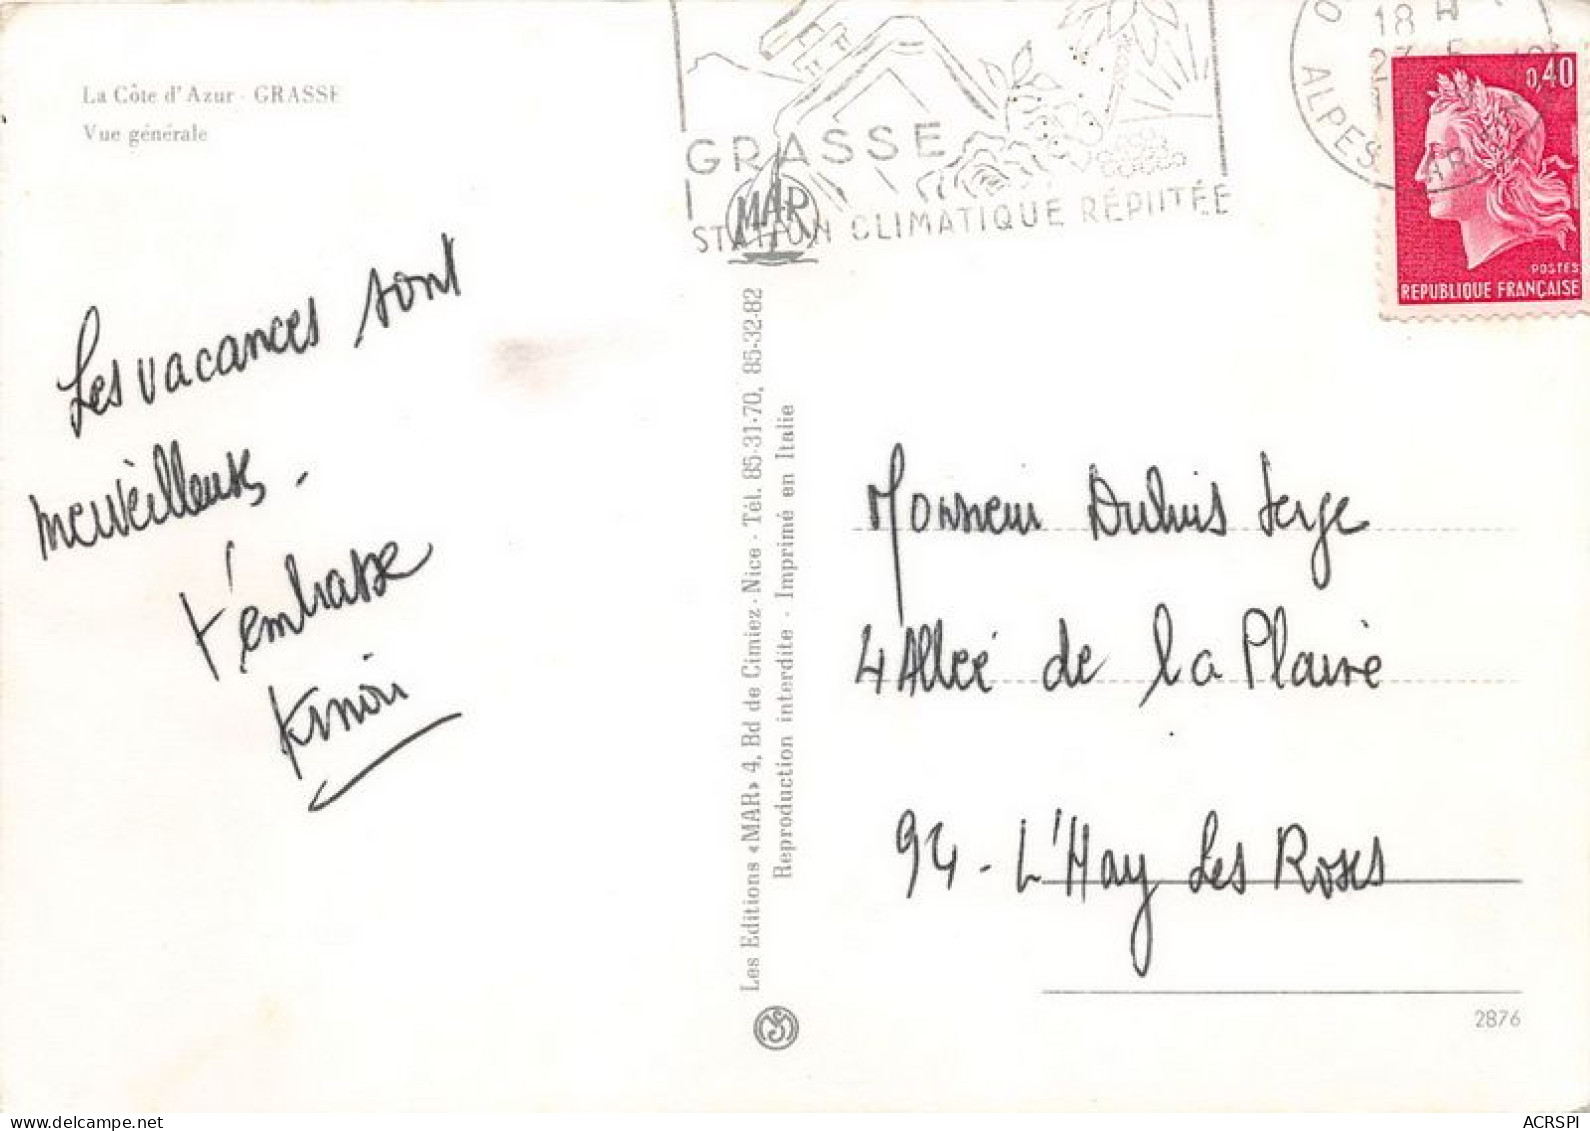 La Côte d'Azur - GRASSE
Vue générale
Les vacances sont
merveilleuses -
t'embrasse
GRASSE
STATION CLIMATIQUE RÉPUTÉE
MAR
18 H
ALPES MAR
0,40
POSTES
REPUBLIQUE FRANÇAISE
Les Editions «MAR» 4, Bd de Cimiez - Nice - Tél. 85-31-70, 85-32-82
Reproduction interdite - Imprimé en Italie
Monsieur Dubuis Serge
4 Allée de la Plaine
94 - L'Hay Les Roses
2876
ACRSPI